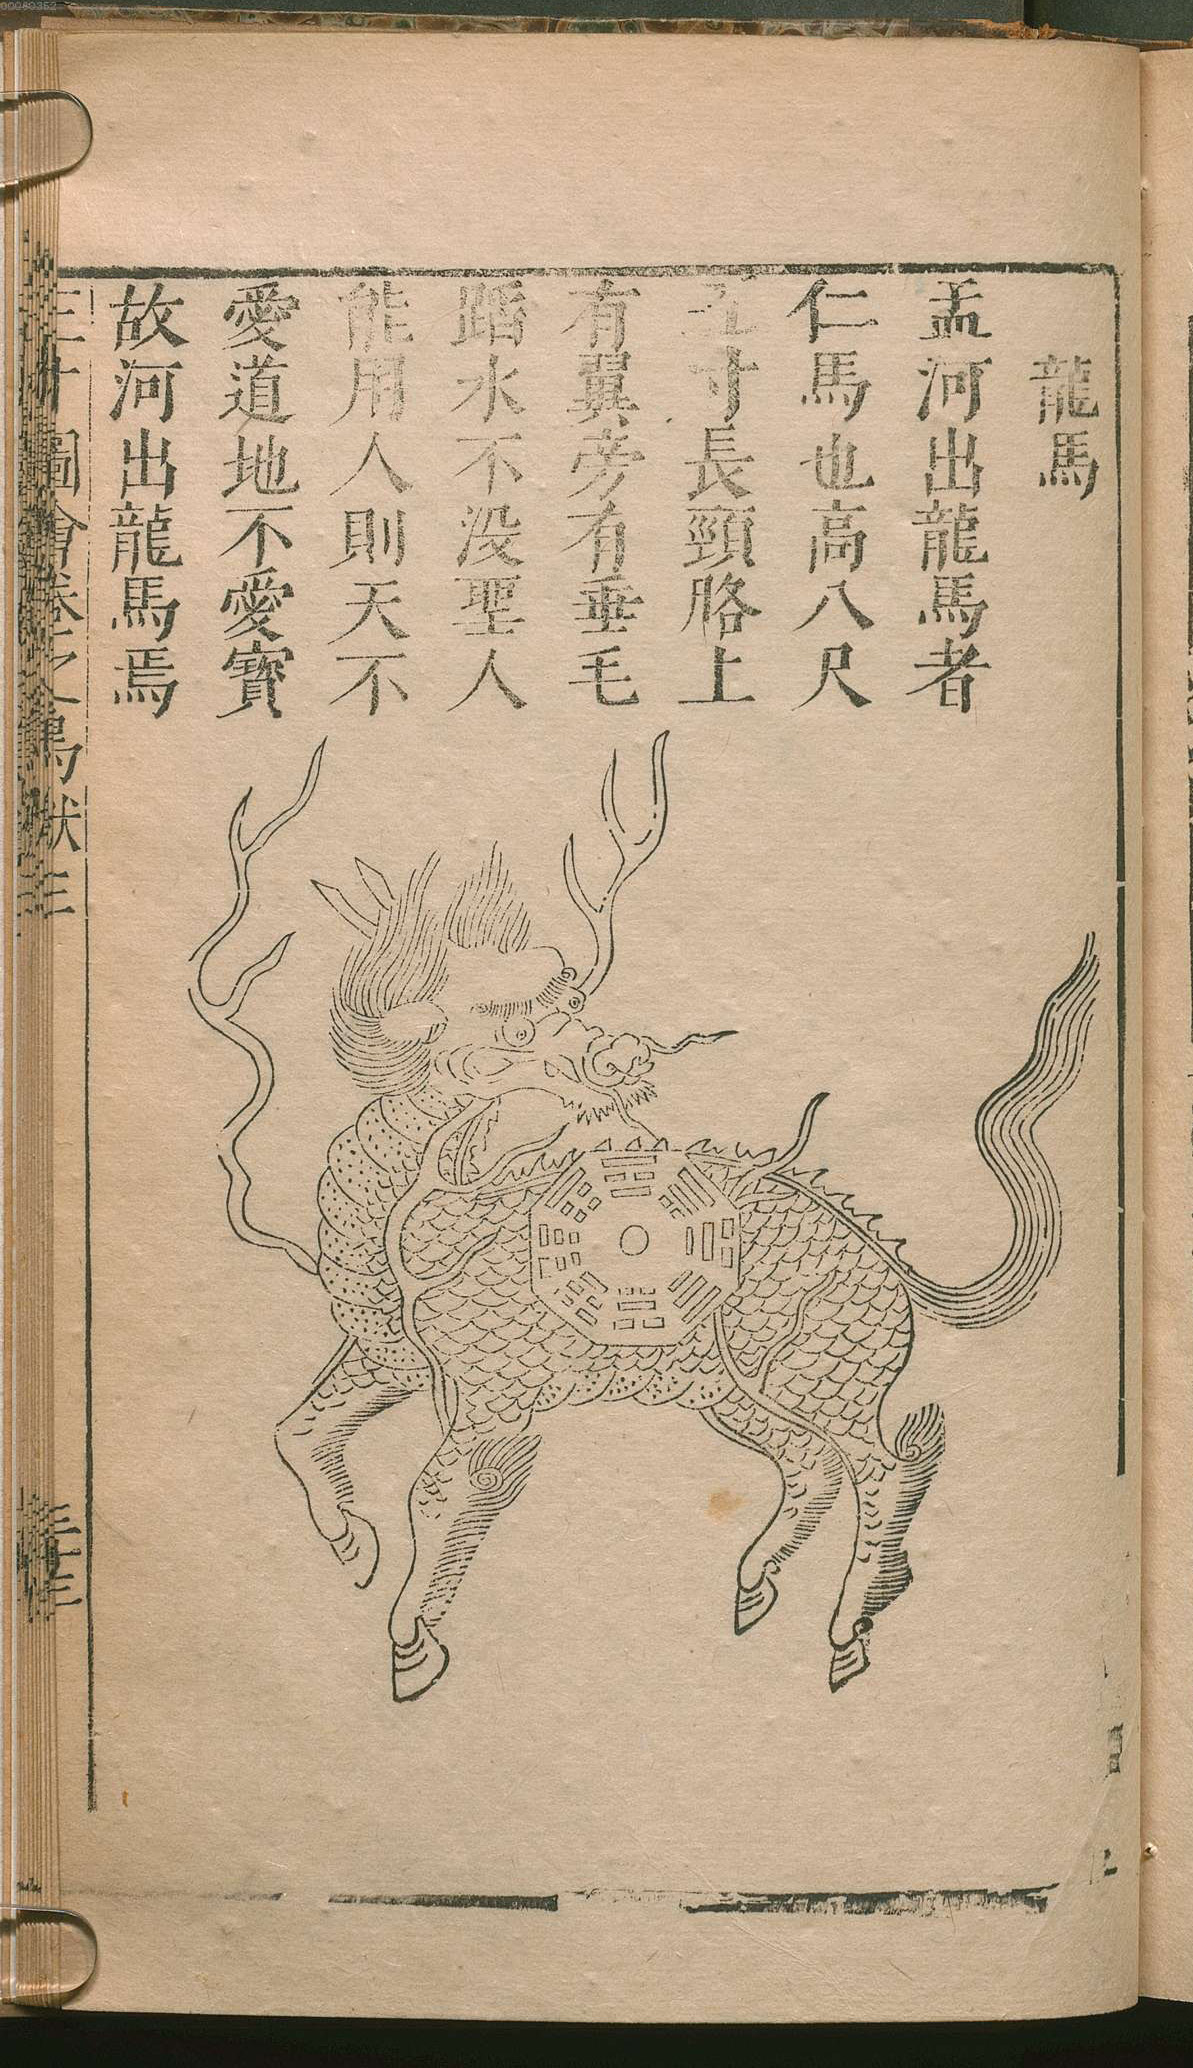 龍馬
孟河出龍馬者
仁馬也高八尺
五寸長頸胳上
有翼旁有垂毛
蹈水不没聖人
能用人則天不
愛道地不愛寳
故河出龍馬焉
三才圖會卷之鳥獸三
三十三
00080352